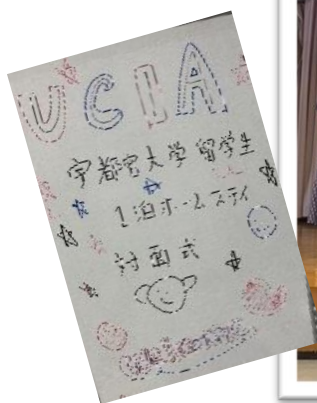 UCIA
宇都宮大学留学生
1泊ホームステイ
対面式